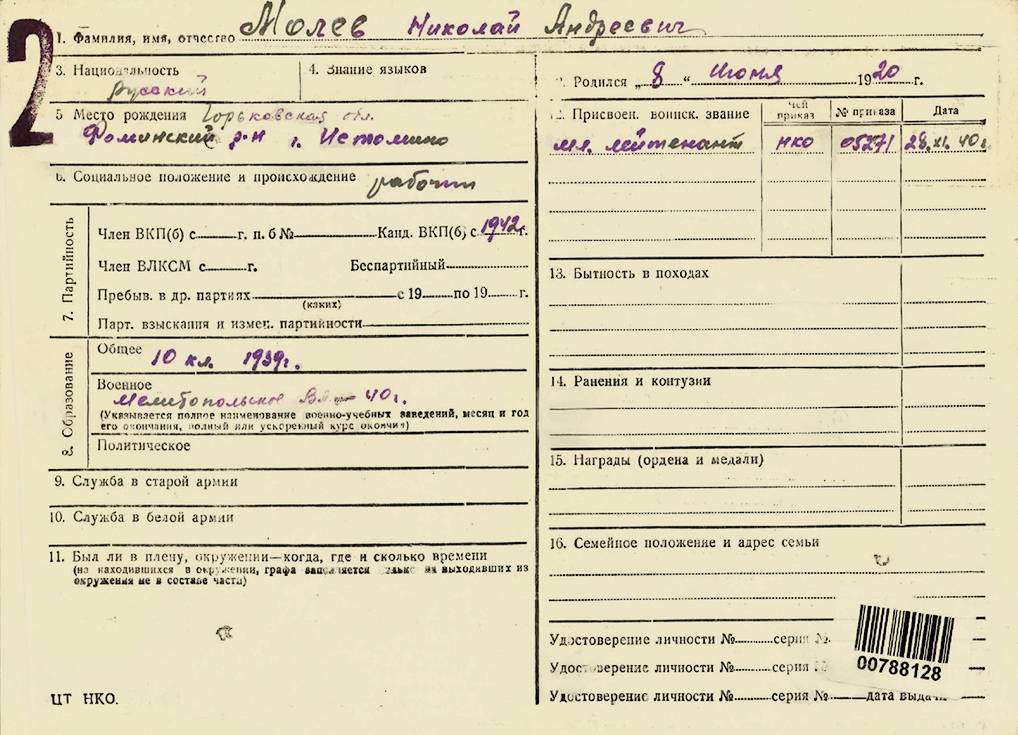 2
1. Фамилия, имя, отчество Молев Николай Андреевич
3. Национальность русский
4. Знание языков
5 Место рождения Горьковская обл.
Фоминский р-н г. Истомино
6. Социальное положение и происхождение рабочий
7. Партийность
Член ВКП(б) с г. п. б № Канд. ВКП(б) с 1942 г.
Член ВЛКСМ с г. Беспартийный
Пребыв. в др. партиях с 19 по 19 г.
(каких)
Парт. взыскания и измен. партийности
8. Образование
Общее 10 кл. 1939г.
Военное
Мелитопольское 40г.
(Указывается полное наименование военно-учебных заведений, месяц и год
его окончания, полный или ускоренный курс окончил)
Политическое
9. Служба в старой армии
10. Служба в белой армии
11. Был ли в плену, окружении—когда, где и сколько времени
(на находившихся в окружении, графа заполняется только на выходивших из
окружения не в составе части)
ЦТ НКО.
2. Родился „8“ Июня 1920 г.
12. Присвоен. воинск. звание
Чей приказ
№ приказа
Дата
мл. лейтенант НКО 05271 28.XI.40г
13. Бытность в походах
14. Ранения и контузии
15. Награды (ордена и медали)
16. Семейное положение и адрес семьи
Удостоверение личности № серия №
Удостоверение личности № серия №
Удостоверение личности № серия № дата выдачи
00788128